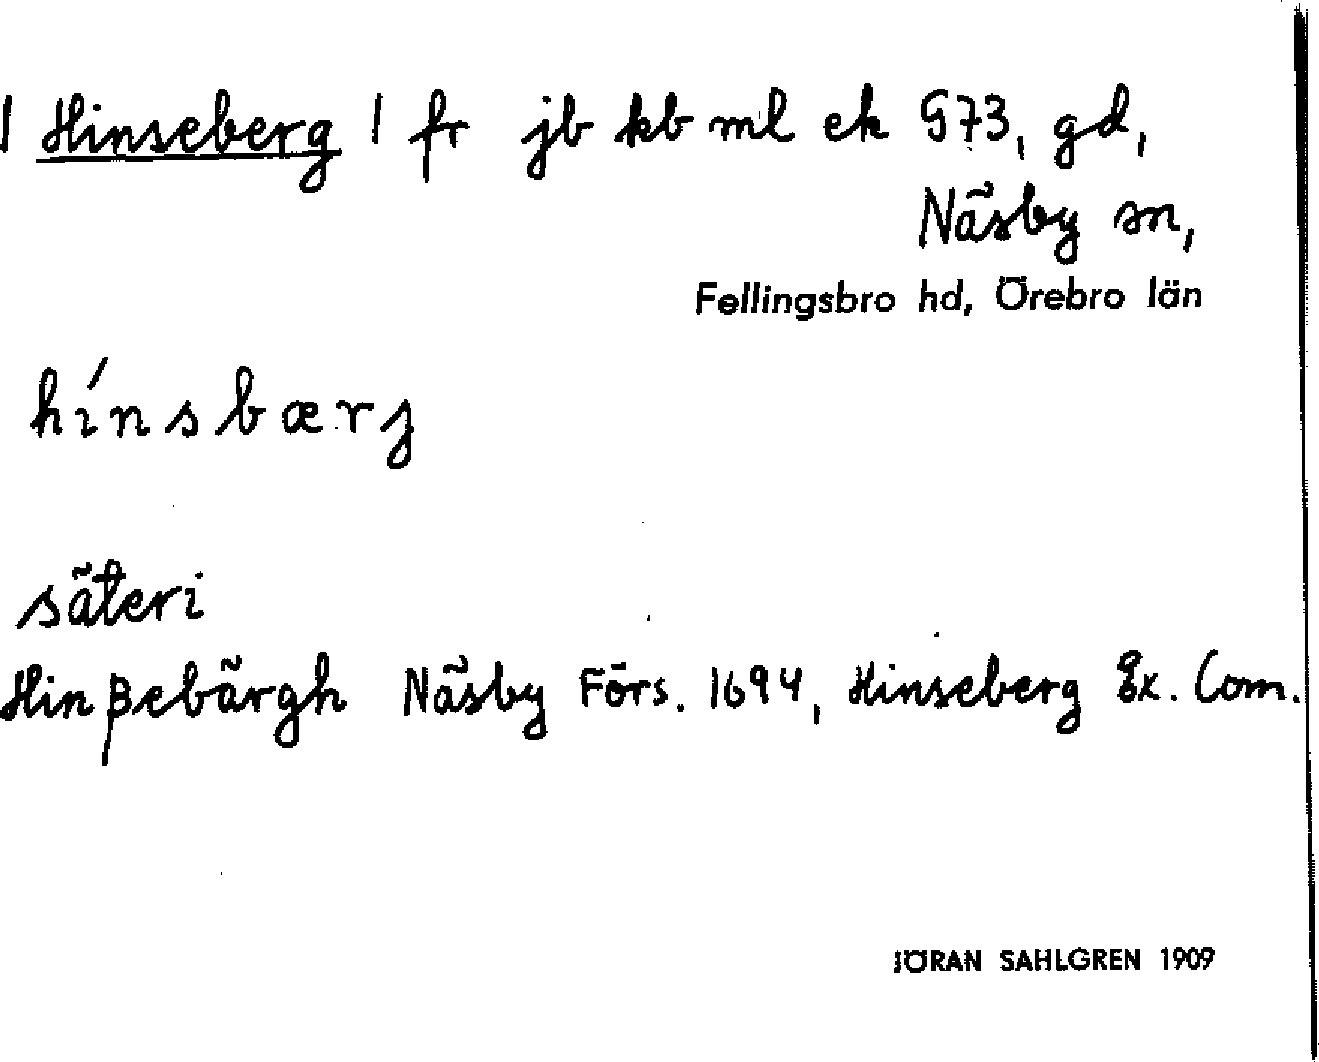 | Hinseberg | fr jb kb ml ek G73, gd,
Näsby sn,
Fellingsbro hd, Örebro län
hínsbærj
säteri
Hinßebärgh Näsby Förs. 1694, Hinseberg Ex. Com.
JÖRAN SAHLGREN 1909